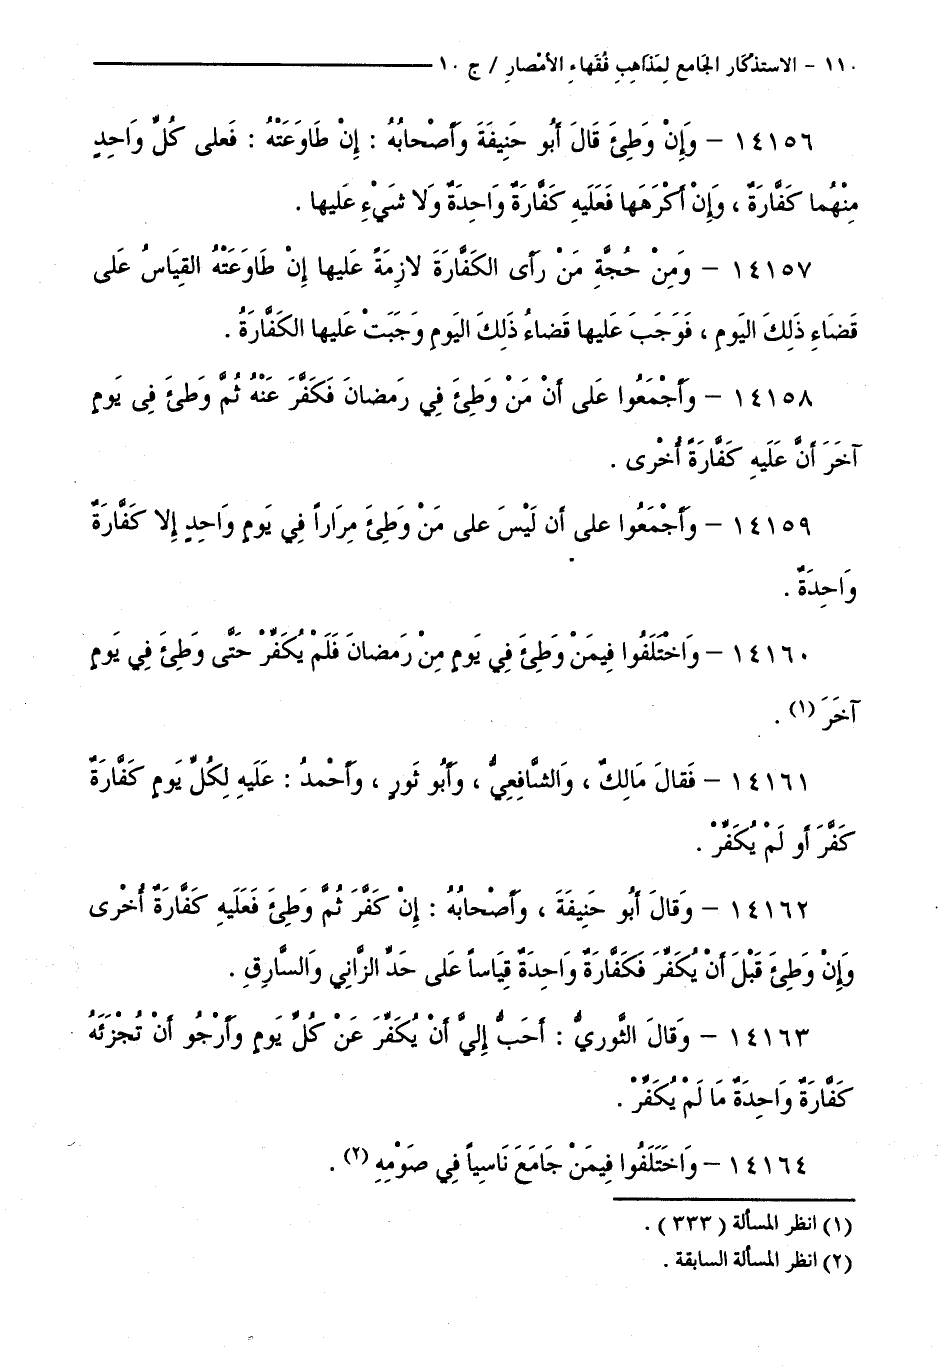 ١١٠ - الاستذْكَار الجَامع لِمَذَاهِبِ فُقَهاءِ الأمْصارِ / ج ١٠
١٤١٥٦ - وَإِنْ وَطِئَ قَالَ أَبُو حَنِيفَةَ وَأَصْحابُهُ : إِنْ طَاوَعَتْهُ : فَعلى كُلِّ وَاحِدٍ
مِنْهُما كَفَّارَةٌ ، وَإِنْ أكْرَهَها فَعَلَيهِ كَفَّارَةٌ وَاحِدَةٌ وَلا شَيْءَ عَليها .
١٤١٥٧ - وَمِنْ حُجَّةِ مَنْ رَأى الكَفَّارَةَ لازِمَةً عَليها إِنْ طَاوَعَتْهُ القِيَاسُ عَلَى
قَضَاءِ ذَلِكَ اليَومِ ، فَوَجَبَ عَليها قَضاءُ ذَلِكَ اليَومِ وَجَبَتْ عَليها الكَفَّارَةُ .
١٤١٥٨ - وَأجْمَعُوا عَلى أنْ مَنْ وَطِئَ فِي رَمضانَ فَكَفَّرَ عَنْهُ ثُمَّ وَطئَ فِى يَومٍ
آخَرَ أنَّ عَلَيهِ كَفَّارَةً أُخْرى .
١٤١٥٩ - وَأجْمَعُوا على أن لَيْسَ على مَنْ وَطِئَ مِرَاراً فِي يَومٍ وَاحِدٍ إِلا كَفَّارَةٌ
وَاحِدَةٌ .
١٤١٦٠ - وَاخْتَلَفُوا فِيمَنْ وَطِئَ فِي يَومٍ مِنْ رَمضانَ فَلَمْ يُكَفِّرْ حَتَّى وَطِئَ فِي يَومٍ
آخَرَ (١) .
١٤١٦١ - فَقالَ مَالِكٌ ، وَالشَّافِعِيُّ ، وَأَبُو ثَورٍ ، وَأَحْمدُ : عَلَيهِ لِكُلِّ يَومٍ كَفَّارَةٌ
كَفَّرَ أو لَمْ يُكَفِّرْ .
١٤١٦٢ - وَقالَ أَبُو حَنِيفَةَ ، وَأَصْحابُهُ : إِنْ كَفَّرَ ثُمَّ وَطِئَ فَعَلَيهِ كَفَّارَةٌ أُخْرى
وَإِنْ وَطِئَ قَبْلَ أنْ يُكَفِّرَ فَكَفَّارَةٌ وَاحِدَةٌ قِيَاساً عَلى حَدِّ الزَّانِي وَالسَّارِقِ .
١٤١٦٣ - وَقالَ الثَّورِيُّ : أَحَبُّ إِليَّ أَنْ يُكَفِّرَ عَنْ كُلِّ يَومٍ وَأرْجُو أنْ تُجْزِئَهُ
كَفَّارَةٌ وَاحِدَةٌ مَا لَمْ يُكَفِّرْ .
١٤١٦٤ - وَاخْتَلَفُوا فِيمَنْ جَامَعَ نَاسِياً فِي صَوْمِهِ (٢) .
(١) انظر المسألة ( ٣٣٣ ) .
(٢) انظر المسألة السابقة .